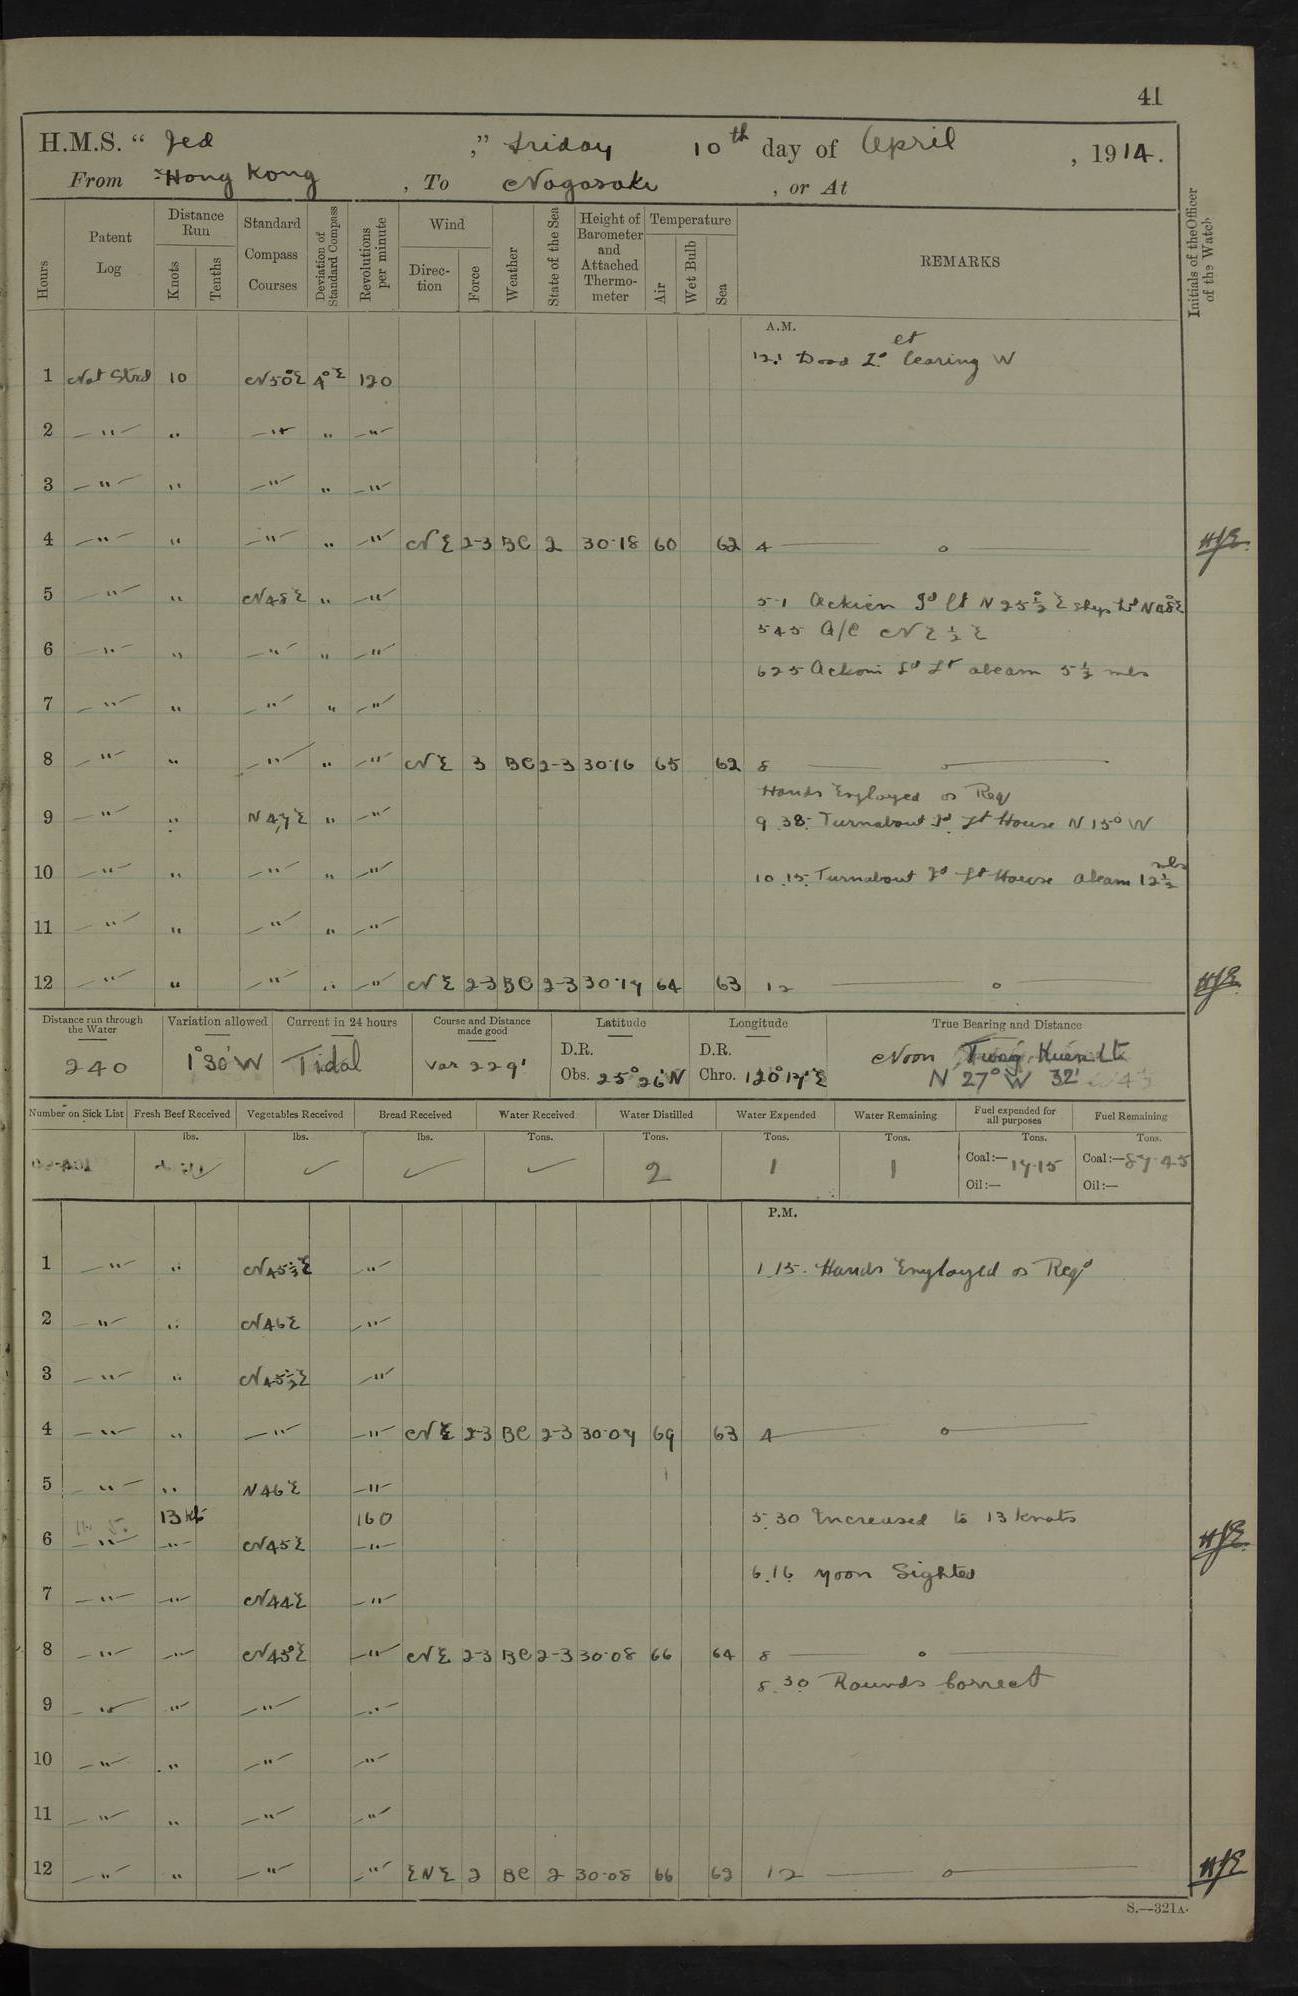 41
H.M.S. “ Jed ,” Friday 10th day of April , 1914.
From Hong Kong , To Nagasaki , or At
Hours
Patent Log
Distance Run
Knots
Tenths
Standard Compass Courses
Deviation of Standard Compass
Revolutions per minute
Wind
Direc-tion
Force
Weather
State of the Sea
Height of Barometer and Attached Thermo-meter
Temperature
Air
Wet Bulb
Sea
REMARKS
Initials of the Officer of the Watch
A.M.
12.1 Dodd Id lt bearing W
1 Not Strd 10 N50°E 4°E 120
2 " " " " "
3 " " " " "
4 " " " " " NE 2-3 BC 2 30·18 60 62 4 o
5 " " N48E " "
5·1 Ockseu Id lt N 25½° E N48°E
5 45 A/C NE ½ E
6 " " " " "
6 25 Id Lt abeam 5½ mls
7 " " " " "
8 " " " " " NE 3 BC 2-3 30·16 65 62 8 o
Hands Employed as Req
9 " " N47E " "
9.38. Turnabout Id. Lt House N 15° W
10 " " " " "
10.15. Turnabout Id Lt House abeam 12½ mls
11 " " " " "
12 " " " " " NE 2-3 BC 2-3 30·17 64 63 12 o
Distance run through the Water
Variation allowed
Current in 24 hours
Course and Distance made good
Latitude
Longitude
True Bearing and Distance
240
1°30'W
Tidal
Var 229'
D.R.
Obs. 25°26'N
D.R.
Chro. 120°17'E
Noon Lt
N 27° W 32'
Number on Sick List
Fresh Beef Received
Vegetables Received
Bread Received
Water Received
Water Distilled
Water Expended
Water Remaining
Fuel expended for all purposes
Fuel Remaining
lbs. lbs. lbs. Tons. Tons. Tons. Tons. Tons. Tons.
2 1 1
Coal:— 17·15
Oil:—
Coal:— 87·45
Oil:—
P.M.
1 " " N45½E " 1.15. Hands Employed as Reqd
2 " " N46E "
3 " " N45½E "
4 " " " " NE 2-3 BC 2-3 30·07 69 63 4 o
5 " " N46E "
13 kts 160 5.30 Increased to 13 knots
6 " " N45E "
6.16 Moon Sighted
7 " " N44E "
8 " " N43°E " NE 2-3 BC 2-3 30·08 66 64 8 o
8.30 Rounds Correct
9 " " " "
10 " " " "
11 " " " "
12 " " " " ENE 2 BC 2 30·08 66 62 12 o
S.—321A.